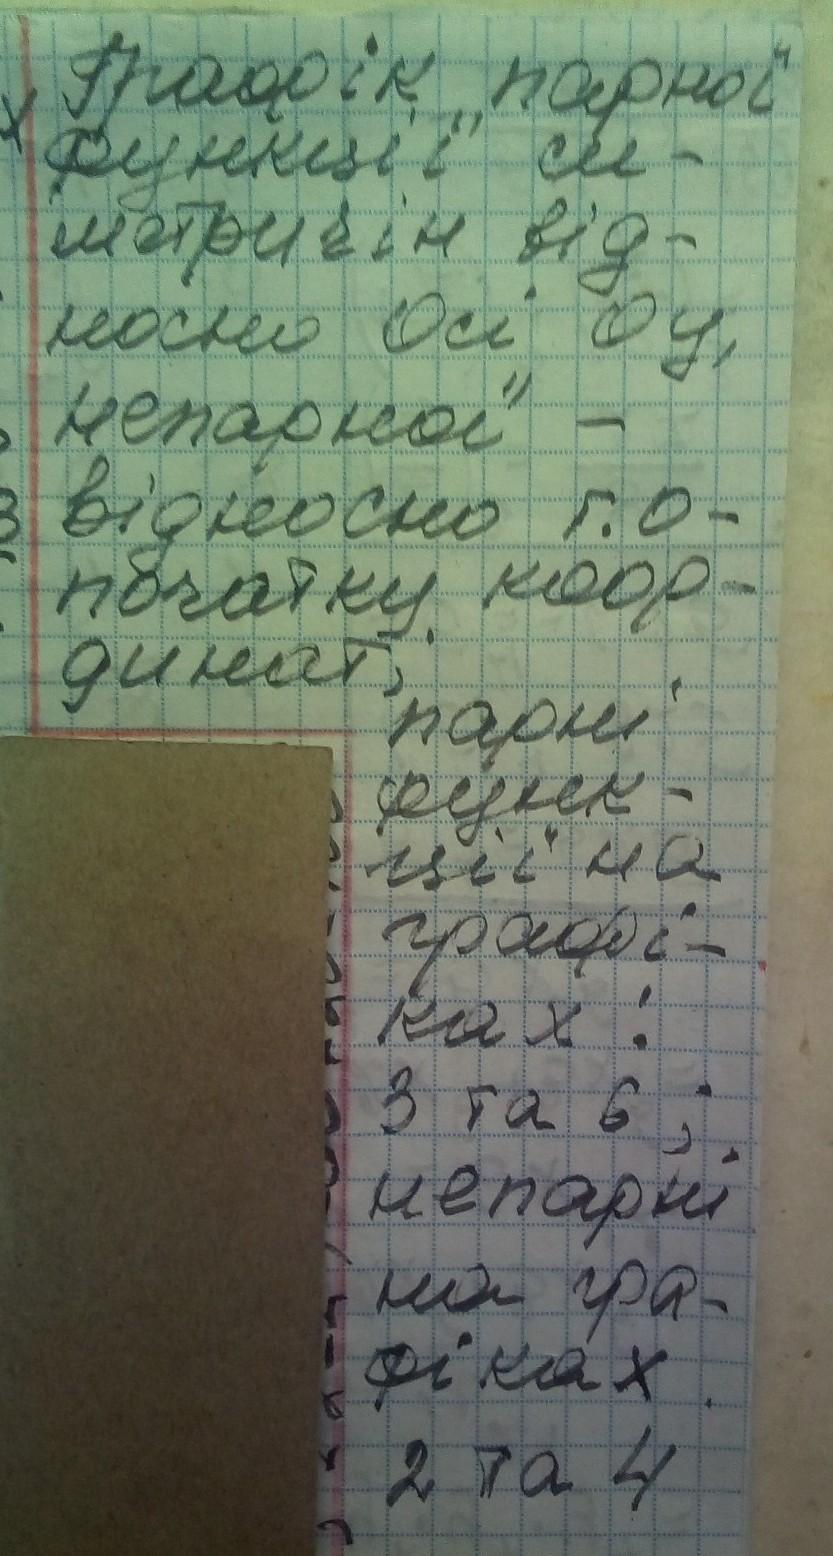 Графік парної
функції си-
метричін від-
носно осі Oy,
непарної –
відносно т. О-
початку коор-
динат;
парні
функ-
ції на
графі-
ках :
3 та 6 ;
непарні
на гра-
фіках
2 та 4